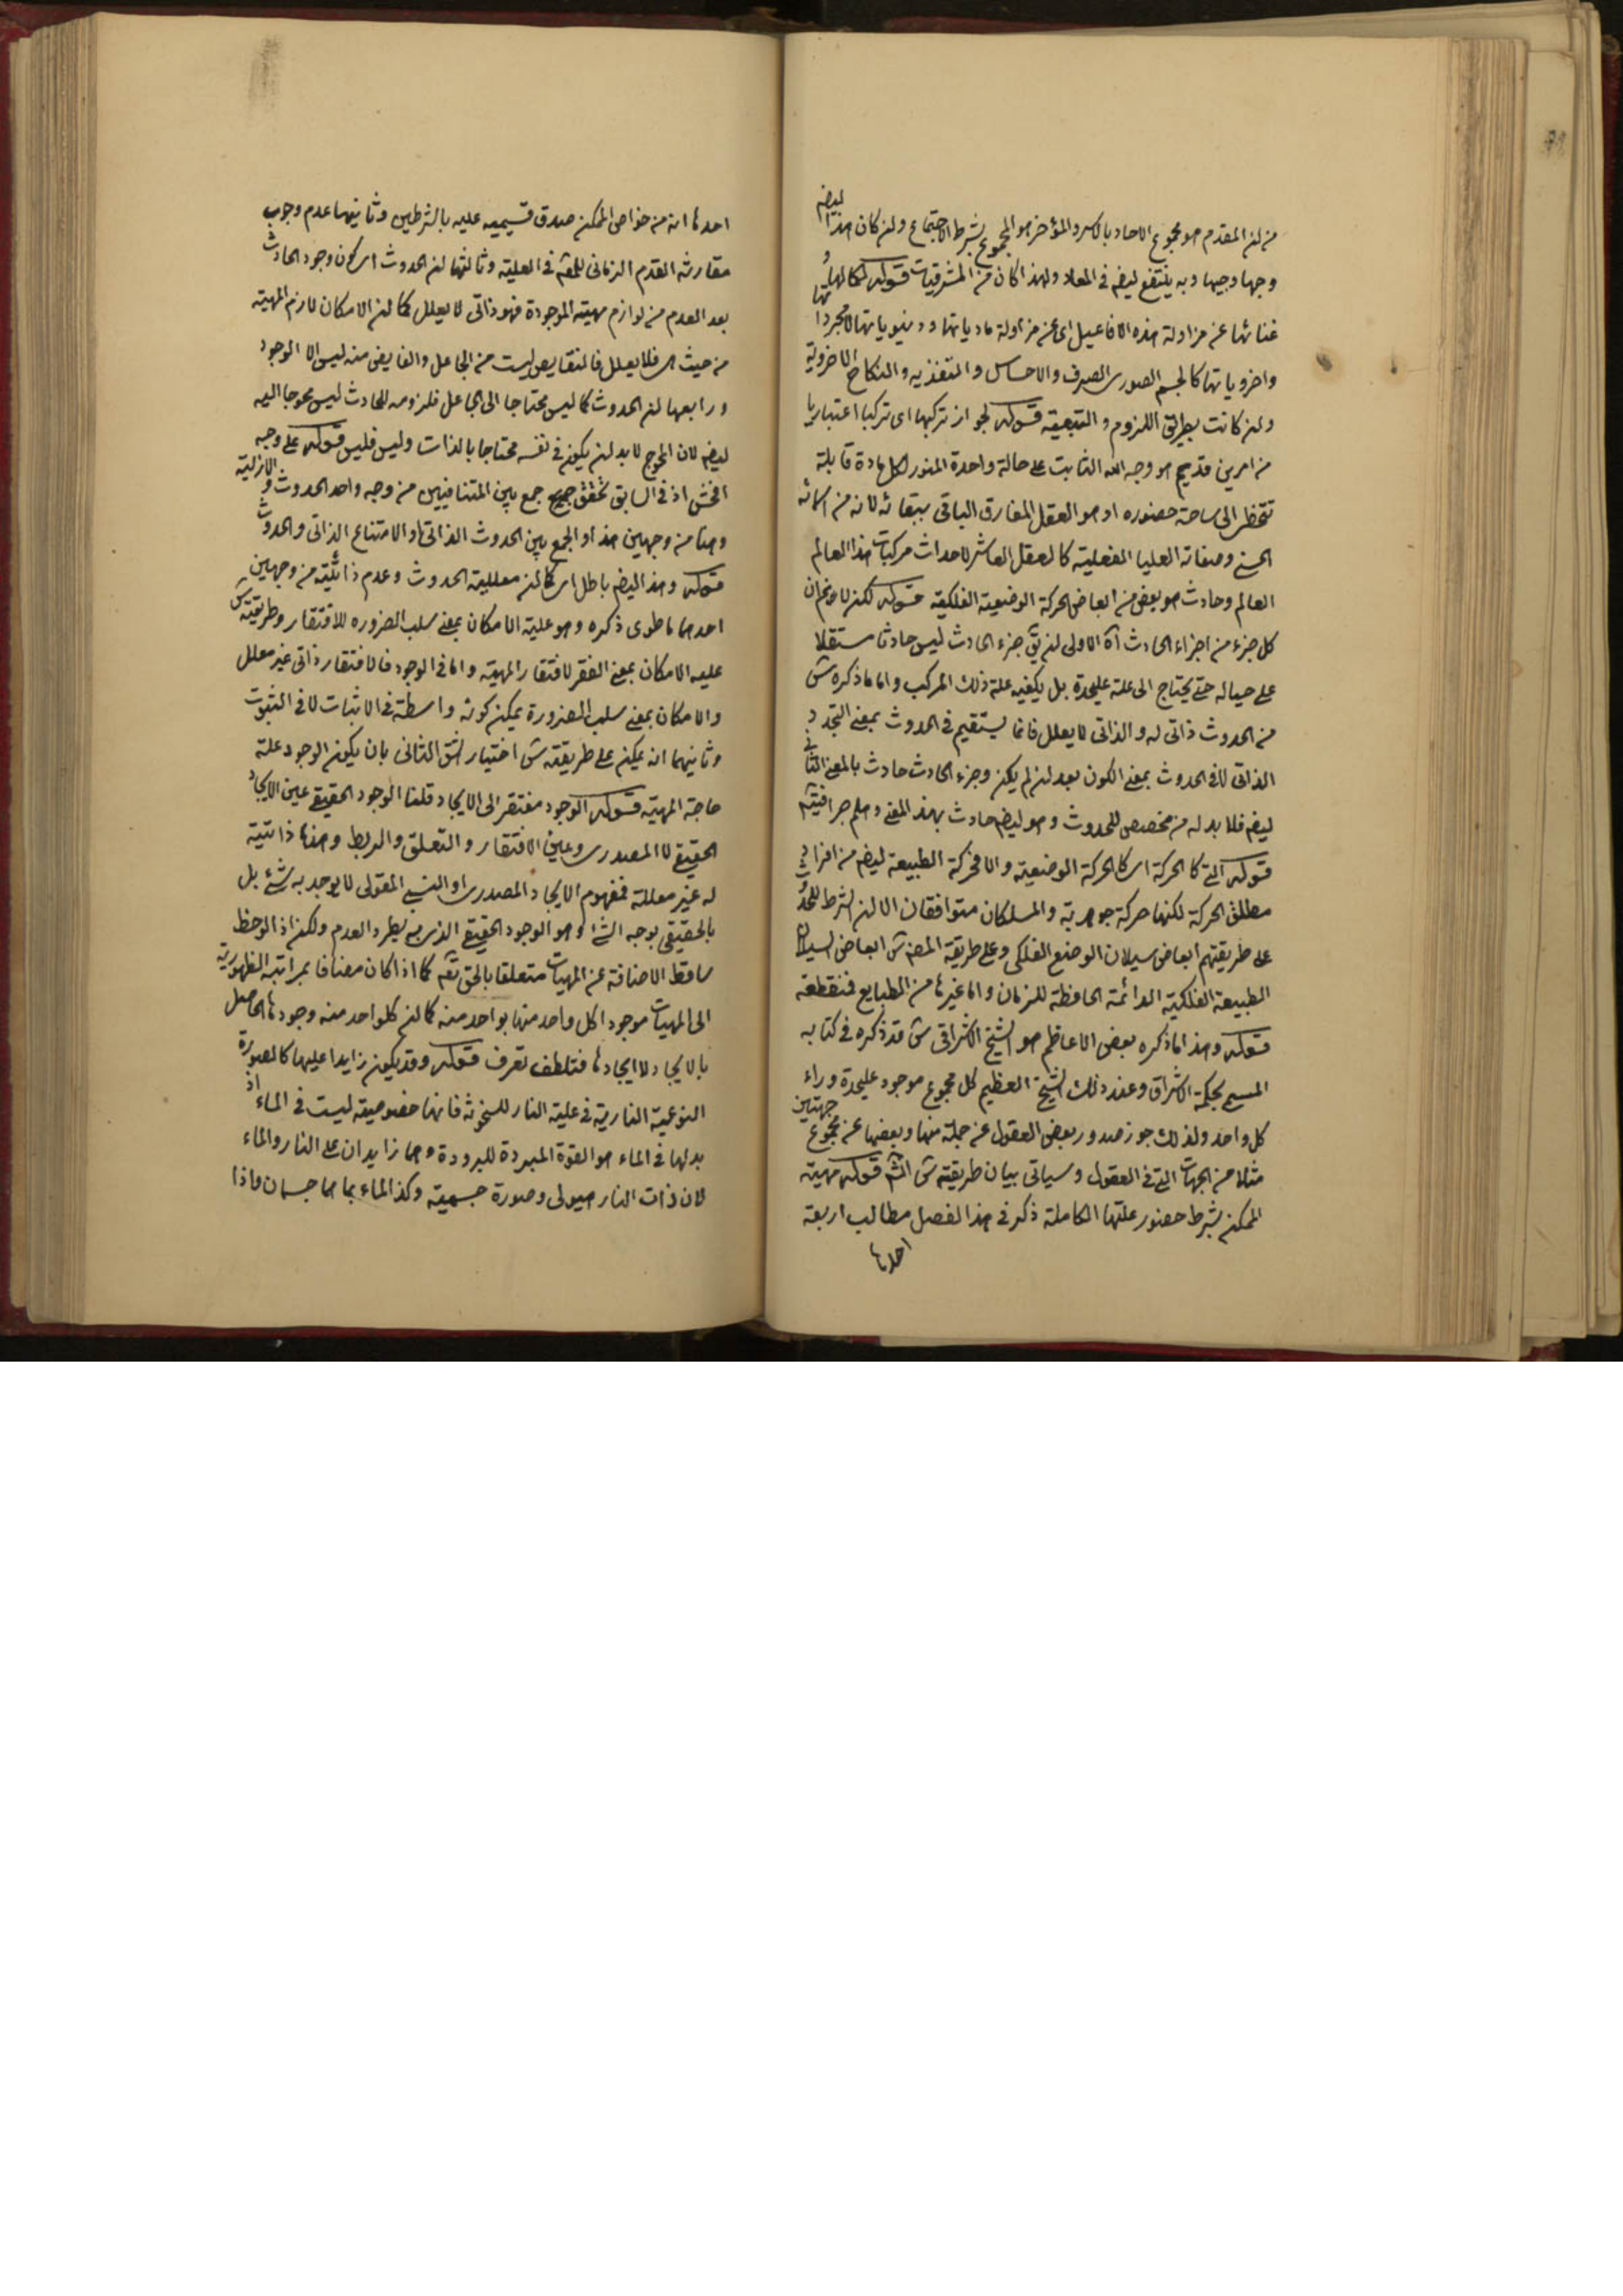 من ان المقدم هو مجموع الاحاد بالاسر والمؤخر هو المجموع بشرط الاجتماع وان كان هذا ايضا
وجها وجيها وبه ينتفع ايضا في المعاد ولهذا كان من المشرقيات قوله لكمالها و
غنائها عن مزاولة هذه الافاعيل اى عن مزاولة مادياتها ودنيوياتها لا مجرداتها
واخروياتها كالجسم الصورى الصرف والاحساس والتغذيه والنكاح الاخروية
وان كانت بطريق اللزوم والتبعية قوله لجواز تركبها اى تركبا اعتباريا
من امرين قديم هو وجه الله الثابت على حالة واحدة المنور لكل مادة قابلة
تتخطر الى ساحة حضوره او هو العقل المفارق الباقى ببقائه لانه من اسمائه
الحسنى وصفاته العليا الفعلية كالعقل العاشر لاحداث مركبات هذا العالم
العالم وحادث هو بعض من ابعاض الحركة الوضعية الفلكية قوله لكن لا
كل جزء من اجزاء الحادث آه الاولى ان يق جزء الحادث ليس حادثا مستقلا
على حياله حتى يحتاج الى علة عليحدة بل يكفيه علة ذلك المركب واما ما ذكره س
من الحدوث ذاتى له والذاتى لا يعلل فانما يستقيم في الحدوث بمعنى التجدد
الذاتى لا في الحدوث بمعنى الكون بعد ان لم يكن وجزء الحادث حادث بالمعنى الثانى
ايضا فلا بد له من مخصص للحدوث وهو ايضا حادث بهذا المعنى وهلم جرا
قوله التى كالحركة اى كالحركة الوضعية والا فحركة الطبيعة ايضا من افراد
مطلق الحركة لكنها حركة جوهرية والمسلكان متوافقان الا ان الشرط للحدوث
على طريقتهم ابعاض سيلان الوضع الفلكى وعلى طريقة المص س ابعاض السيلان
الطبيعة الفلكية الدائمة الحافظة للزمان واما غيرها من الطبايع فمنقطعة
قوله وهذا ما ذكره بعض الاعاظم هو الشيخ الاشراقى س قد ذكره في كتابه
المسمى بحكمة الاشراق وعند ذلك الشيخ العظيم كل مجموع موجود عليحدة وراء
كل واحد ولذلك جوز صدور بعض العقول عن جملة منها وبعضها عن مجموع جهتين
مثلا من الجهات التى في العقول وسياتى بيان طريقته س قوله مهية
الممكن بشرط حضور علتها الكاملة ذكر في هذا الفصل مطالب اربعة
احدها
احدها انه من خواص الممكن صدق قسيميه عليه بالشرطين وثانيها عدم وجوب
مقارنة القدم الزمانى للقدم في العلية وثالثها ان الحدوث اى كون وجود الحادث
بعد العدم من لوازم مهيته الموجودة فهو ذاتى لا يعلل كما ان الامكان لازم المهية
من حيث هى فلا يعلل فالنقايص ليست من الجاعل والفايض منه ليس الا الوجود
ورابعها ان الحدوث كما ليس محتاجا الى الجاعل فلزومه للحادث ليس محوجا اليه
ايضا لان المحوج لا بد ان يكون في نفسه محتاجا بالذات وليس فليس قوله على وجه
افحش اذ في السابق تحقق جمع بين المتنافيين من وجه واحد الحدوث والازلية
وهنا من وجهين هذا والجمع بين الحدوث الذاتى والامتناع الذاتى والحدوث
قوله وهذا ايضا باطل اى كما ان معللية الحدوث وعدم ذاتيته من وجهين
احدهما ما طوى ذكره وهو علية الامكان بمعنى سلب الضروره للافتقار وطريقته س
علية الامكان بمعنى الفقر لافتقار المهية واما في الوجود فالافتقار ذاتى غير معلل
والامكان بمعنى سلب الضرورة يمكن كونه واسطة في الاثبات لا في الثبوت
وثانيهما انه يمكن على طريقته س اختيار الشق الثانى بان يكون الوجود علة
حاجة المهية قوله الوجود مفتقر الى الايجاد قلنا الوجود الحقيقى عين الايجاد
الحقيقى لا المصدرى وعين الافتقار والتعلق والربط وهذا ذاتية
له غير معللة فمفهوم الايجاد المصدرى او النسبى المقولى لا يوجد به شئ بل
بالحقيقى يوجد الشئ وهو الوجود الحقيقى الذى به يطرد العدم ولكن اذا لوحظ
ساقط الاضافة عن المهيات متعلقا بالحق تعه كما اذا كان مضافا بمراتبه الظهورية
الى المهيات موجود اكل واحد منها بواحد منه كما ان كلواحد منه وجودها الحاصل
بالايجاد لا ايجادها فتلطف تعرف قوله وقد يكون زايدا عليها كالصورة
النوعية النارية في علية النار للسخونة فانها خصوصية ليست في الماء اذ
بدلها في الماء هو القوة المبردة للبرودة وهما زايدان على النار والماء
لان ذات النار هيولى وصورة جسمية وكذا الماء بما هما جسمان واذا